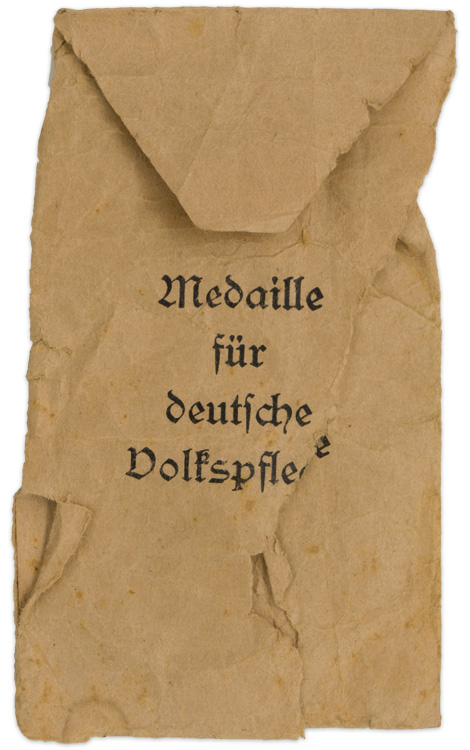 Medaille
für
deutſche
Volkspflege